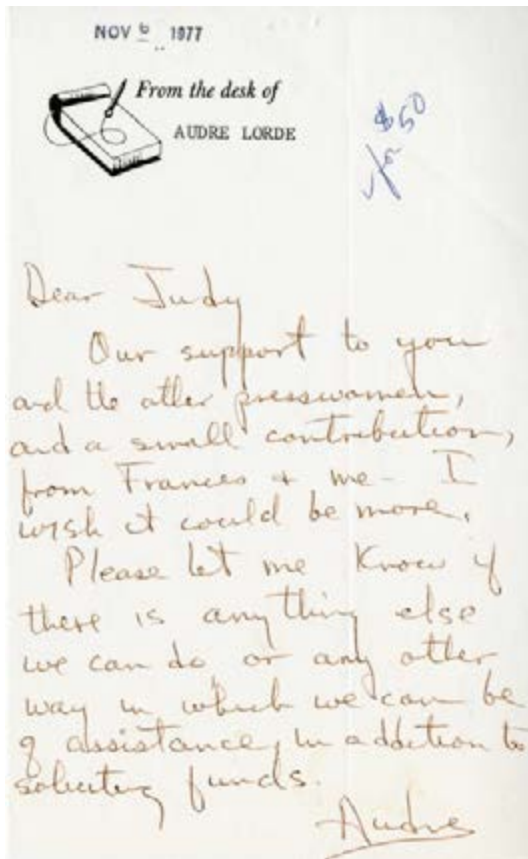 NOV 6 1977
From the desk of
AUDRE LORDE
$50
Dear Judy
Our support to you
and the other presswomen,
and a small contribution,
from Frances + me - I
wish it could be more.
Please let me know if
there is anything else
we can do, or any other
way in which we can be
of assistance, in addition to
soliciting funds.
Audre